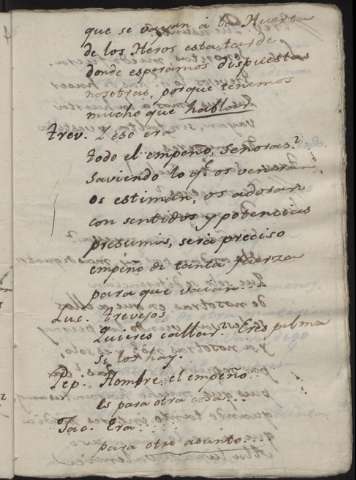 que se vayan á la Huerta
de los Heros esta tarde
donde esperamos dispuestas
nosotras, porque tenemos
mucho que hablar.
Trev. Y ese era
todo el empeño, Señoras?
Saviendo lo q.e os veneran
os estiman, os adoran
con sentidos y potencias
presumís, será preciso
empeño de tanta fuerza
para que vaian?
Luc. Trevejos.
Quieres callar
Si los hay.
Pep. Hombre, el empeño
es para otra cosa.
Jac. Era
para otro asunto.